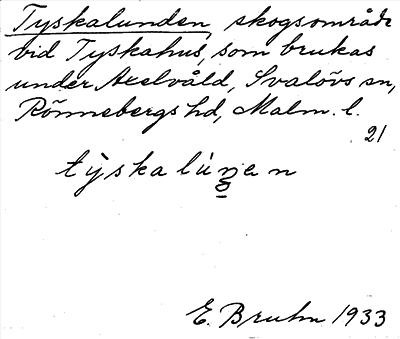 Tyskalunden, skogsområde
vid Tyskahus, som brukas
under Axelvåld, Svalövs sn,
Rönnebergs hd, Malm. l.
21
E. Bruhn 1933